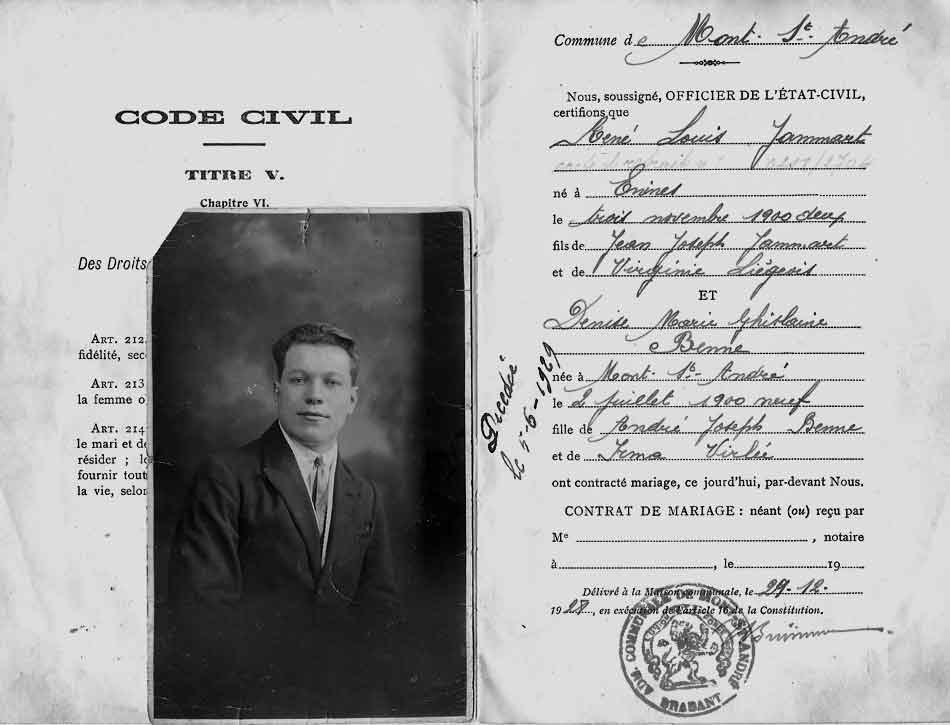 CODE CIVIL
TITRE V.
Chapitre VI.
Des Droits
ART. 212.
fidélité, sec
ART. 213
la femme o
ART. 214
le mari et de
résider ; le
fournir tout
la vie, selon
Commune de Mont-St-André
Nous, soussigné, OFFICIER DE L'ÉTAT-CIVIL,
certifions que
René Louis Jammart
né à Enines
le trois novembre 1900 deux
fils de Jean Joseph Jammart
et de Virginie Liégeois
ET
Denise Marie Ghislaine
Benne
née à Mont-St-André
le 2 juillet 1900 neuf
fille de André Joseph Benne
et de Irma Virlée
ont contracté mariage, ce jourd'hui, par-devant Nous.
CONTRAT DE MARIAGE : néant (ou) reçu par
Me , notaire
à , le 19
Délivré à la Maison communale, le 29-12-
1928, en exécution de l'article 16 de la Constitution.
Décédée
le 5-6-1929
ADM. COMMUNALE DE MONT-ST-ANDRÉ
BRABANT